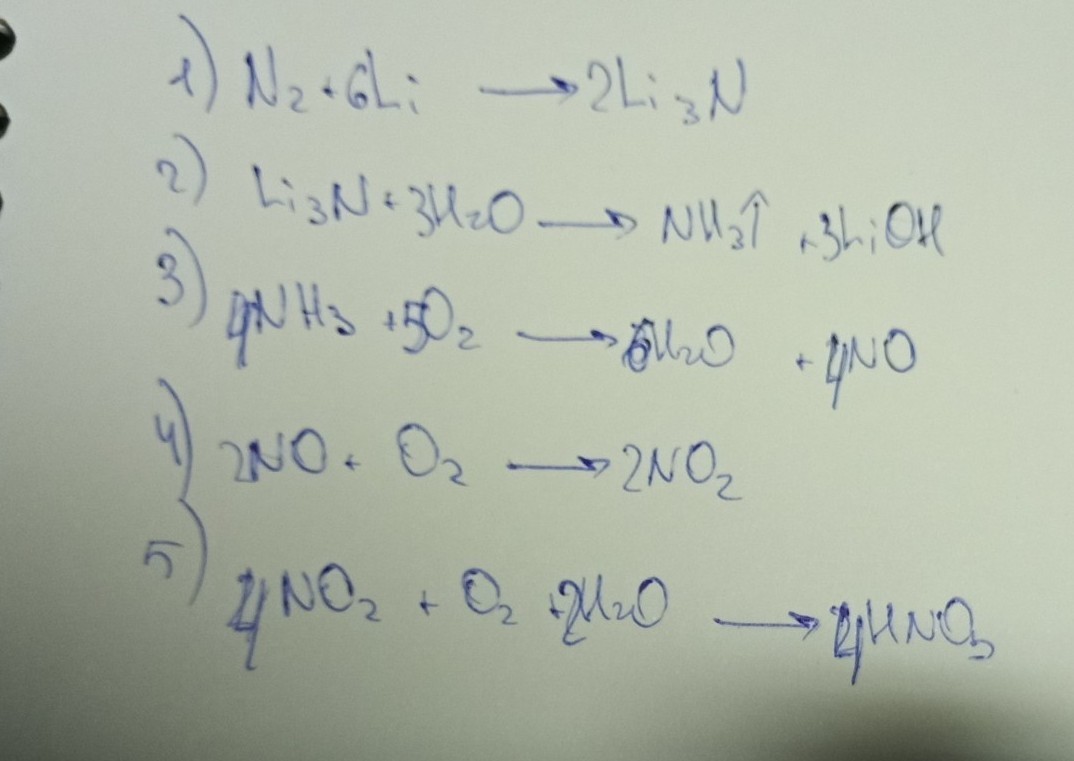 1) N₂ + 6Li → 2Li₃N
2) Li₃N + 3H₂O → NH₃↑ + 3LiOH
3) 4NH₃ + 5O₂ → 6H₂O + 4NO
4) 2NO + O₂ → 2NO₂
5) 4NO₂ + O₂ + 2H₂O → 4HNO₃